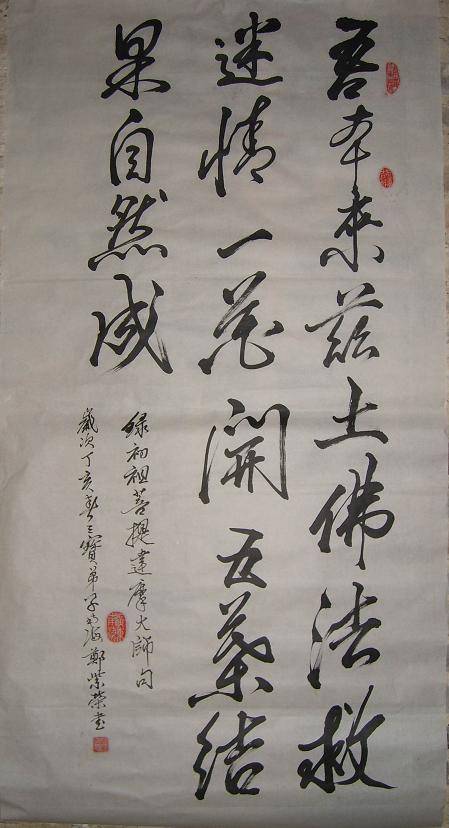 吾本来茲土佛法救
迷情一花開五葉结
果自然成
録初祖菩提達摩大師句
歲次丁亥春三寶弟子海鄭紫荣书